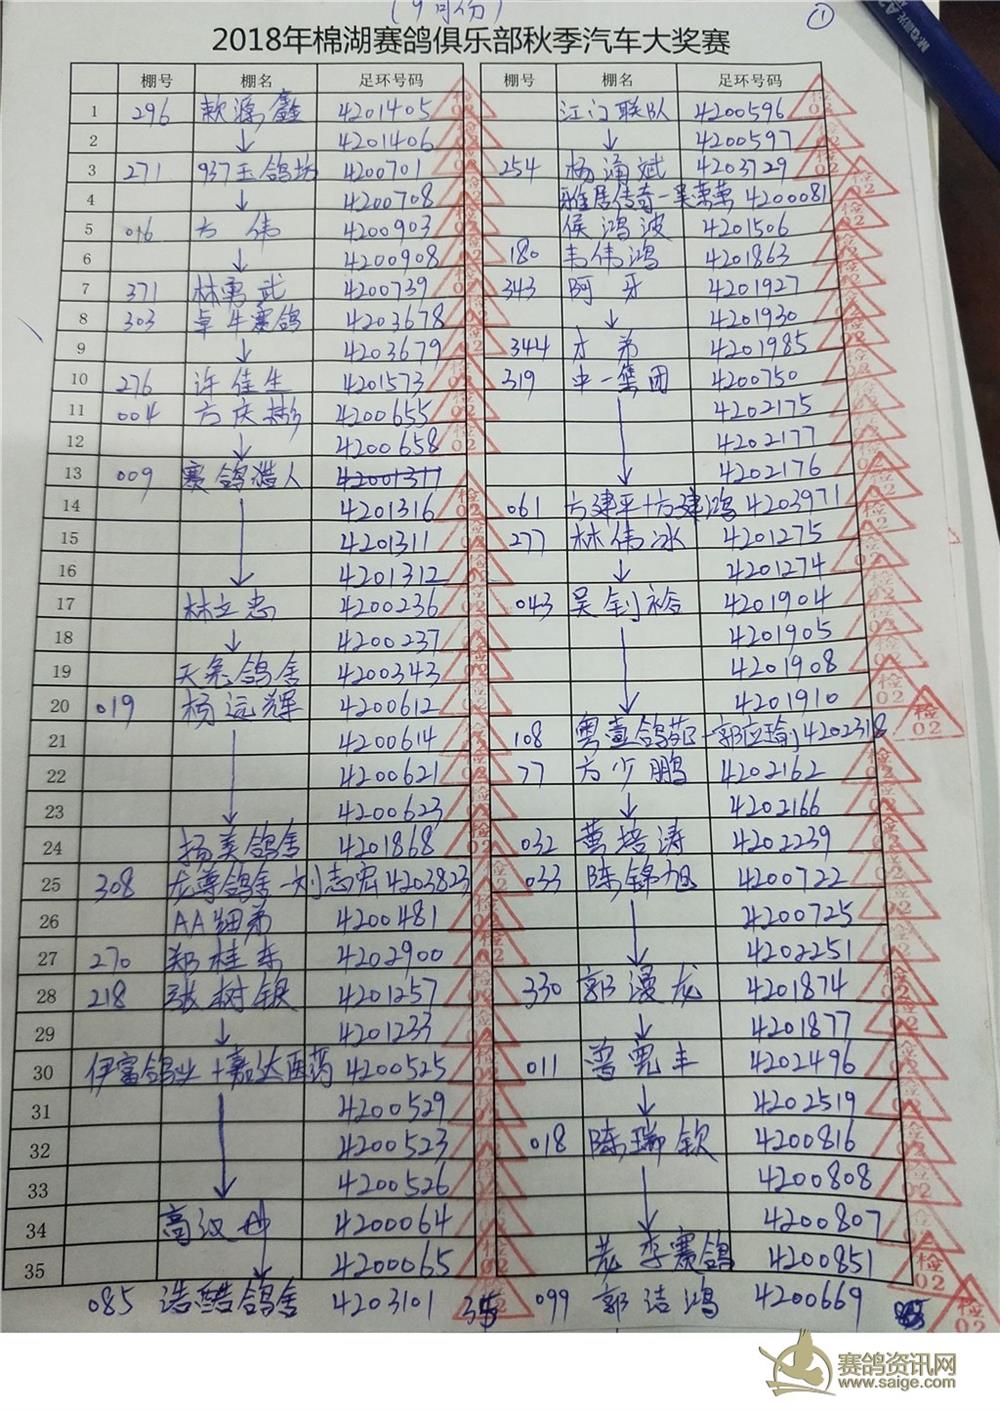 (9月份)
①
2018年棉湖赛鸽俱乐部秋季汽车大奖赛
棚号 棚名 足环号码 棚号 棚名 足环号码
1 296 款源鑫 4201405 江门联队 4200596
2 ↓ 4201406 ↓ 4200597
3 271 937王鸽坊 4200701 254 杨涌斌 4203729
4 ↓ 4200708 雅居传奇-吴荣荣 4200081
5 016 方伟 4200903 侯鸿波 4201506
6 ↓ 4200908 180 韦伟鸿 4201863
7 371 林勇武 4200739 343 阿牙 4201927
8 303 卓牛赛鸽 4203678 ↓ 4201930
9 ↓ 4203679 344 才弟 4201985
10 276 许佳生 4201573 319 中一集团 4200750
11 004 方庆彬 4200655 4202175
12 ↓ 4200658 4202177
13 009 赛鸽猎人 42001317 ↓ 4202176
14 4201316 061 方建平+方建鸿 4203971
15 4201311 277 林伟冰 4201275
16 ↓ 4201312 ↓ 4201274
17 林立忠 4200236 043 吴钊裕 4201904
18 ↓ 4200237 4201905
19 天祭鸽舍 4200343 4201908
20 019 杨远辉 4200612 ↓ 4201910
21 4200614 108 粤壹鸽苑-郭应瑜 4202318
22 4200621 77 方少鹏 4202162
23 ↓ 4200623 ↓ 4202166
24 扬美鸽舍 4201868 032 黄培涛 4202239
25 308 龙尊鸽舍-刘志宏 4203823 033 陈锦旭 4200722
26 AA细弟 4200481 4200725
27 270 郑桂东 4202900 ↓ 4202251
28 218 张树钦 4201257 330 郭漫龙 4201874
29 ↓ 4201233 ↓ 4201877
30 伊富鸽业+嘉达医药 4200525 011 曾宪丰 4202496
31 4200529 ↓ 4202519
32 4200523 018 陈瑞钦 4200816
33 ↓ 4200526 4200808
34 高汉坤 4200064 ↓ 4200807
35 ↓ 4200065 老李赛鸽 4200851
085 浩酷鸽舍 4203101 35 099 郭洁鸿 4200669
检
02
赛鸽资讯网
www.saige.com